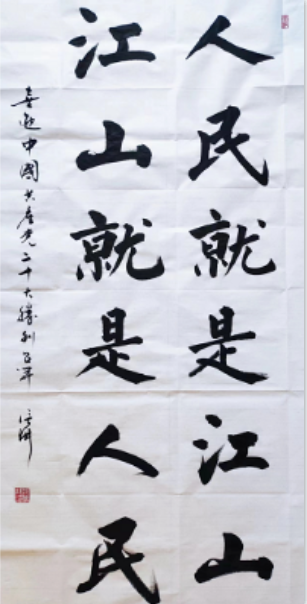 人民就是江山
江山就是人民
喜迎中國共産党二十大勝利召开